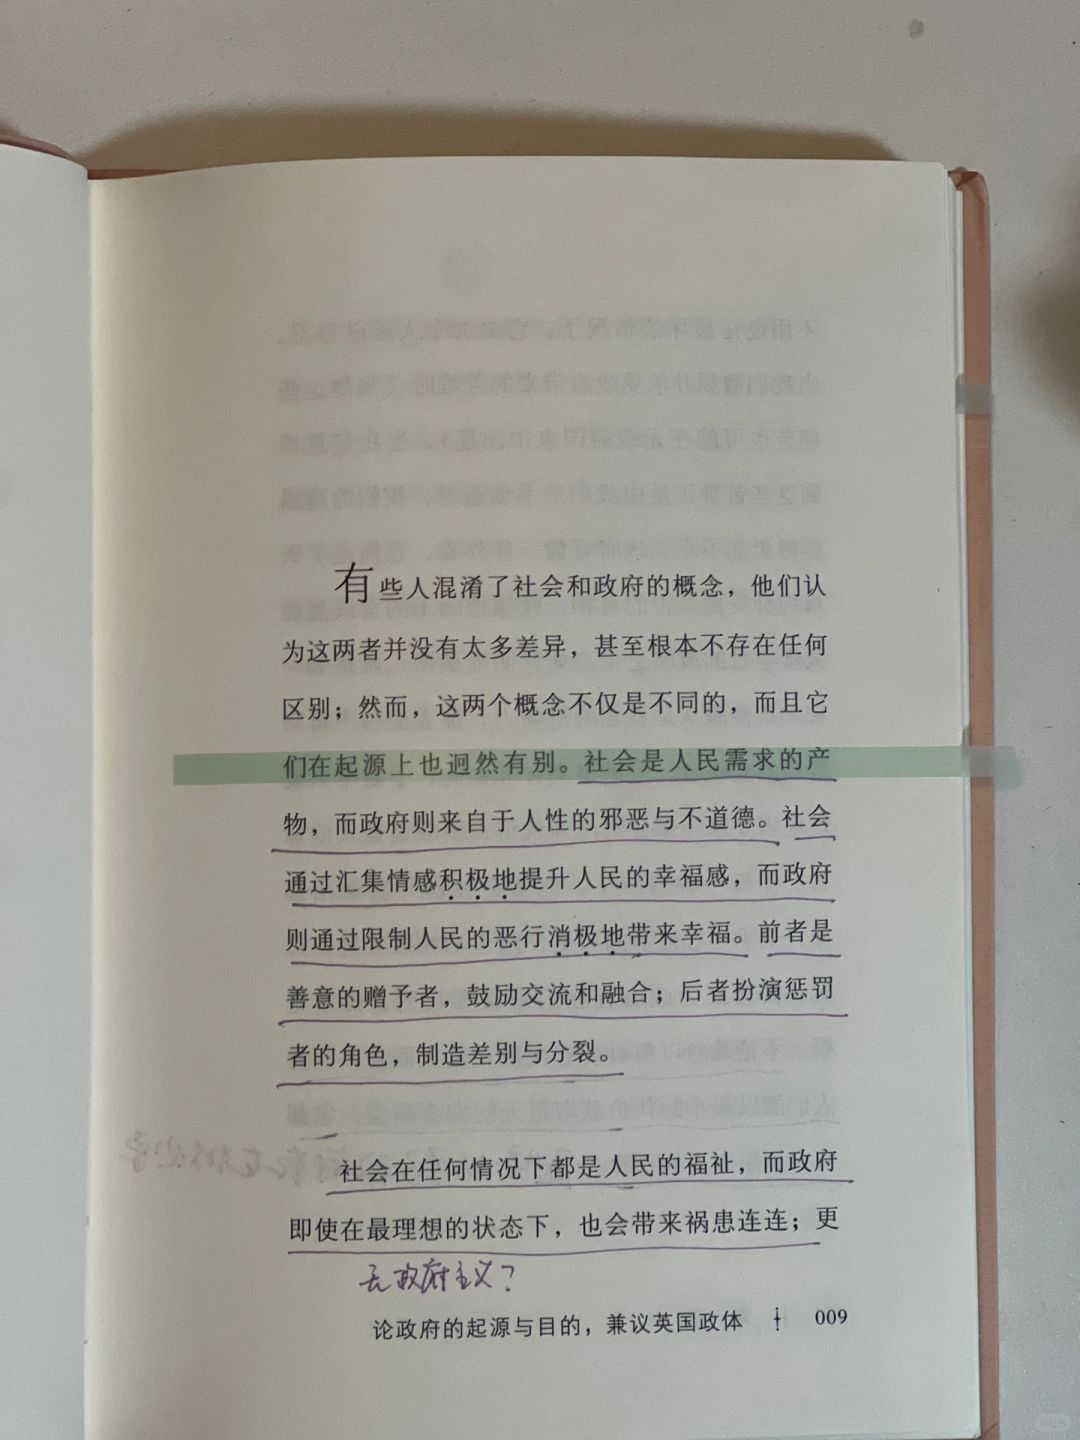 有些人混淆了社会和政府的概念，他们认
为这两者并没有太多差异，甚至根本不存在任何
区别；然而，这两个概念不仅是不同的，而且它
们在起源上也迥然有别。社会是人民需求的产
物，而政府则来自于人性的邪恶与不道德。社会
通过汇集情感积极地提升人民的幸福感，而政府
则通过限制人民的恶行消极地带来幸福。前者是
善意的赠予者，鼓励交流和融合；后者扮演惩罚
者的角色，制造差别与分裂。
社会在任何情况下都是人民的福祉，而政府
即使在最理想的状态下，也会带来祸患连连；更
无政府主义？
论政府的起源与目的，兼议英国政体 009